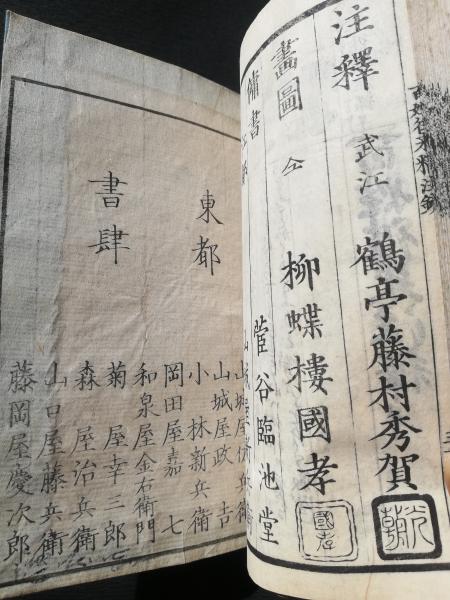 注釋 武江 鶴亭藤村秀賀
畫圖 仝 柳蝶樓國孝
國孝
傭書 菅谷臨池堂
東都
書肆
山城屋政吉
小林新兵衛
岡田屋嘉七
和泉屋金右衛門
菊屋幸三郎
森屋治兵衛
山口屋藤兵衛
藤岡屋慶次郎